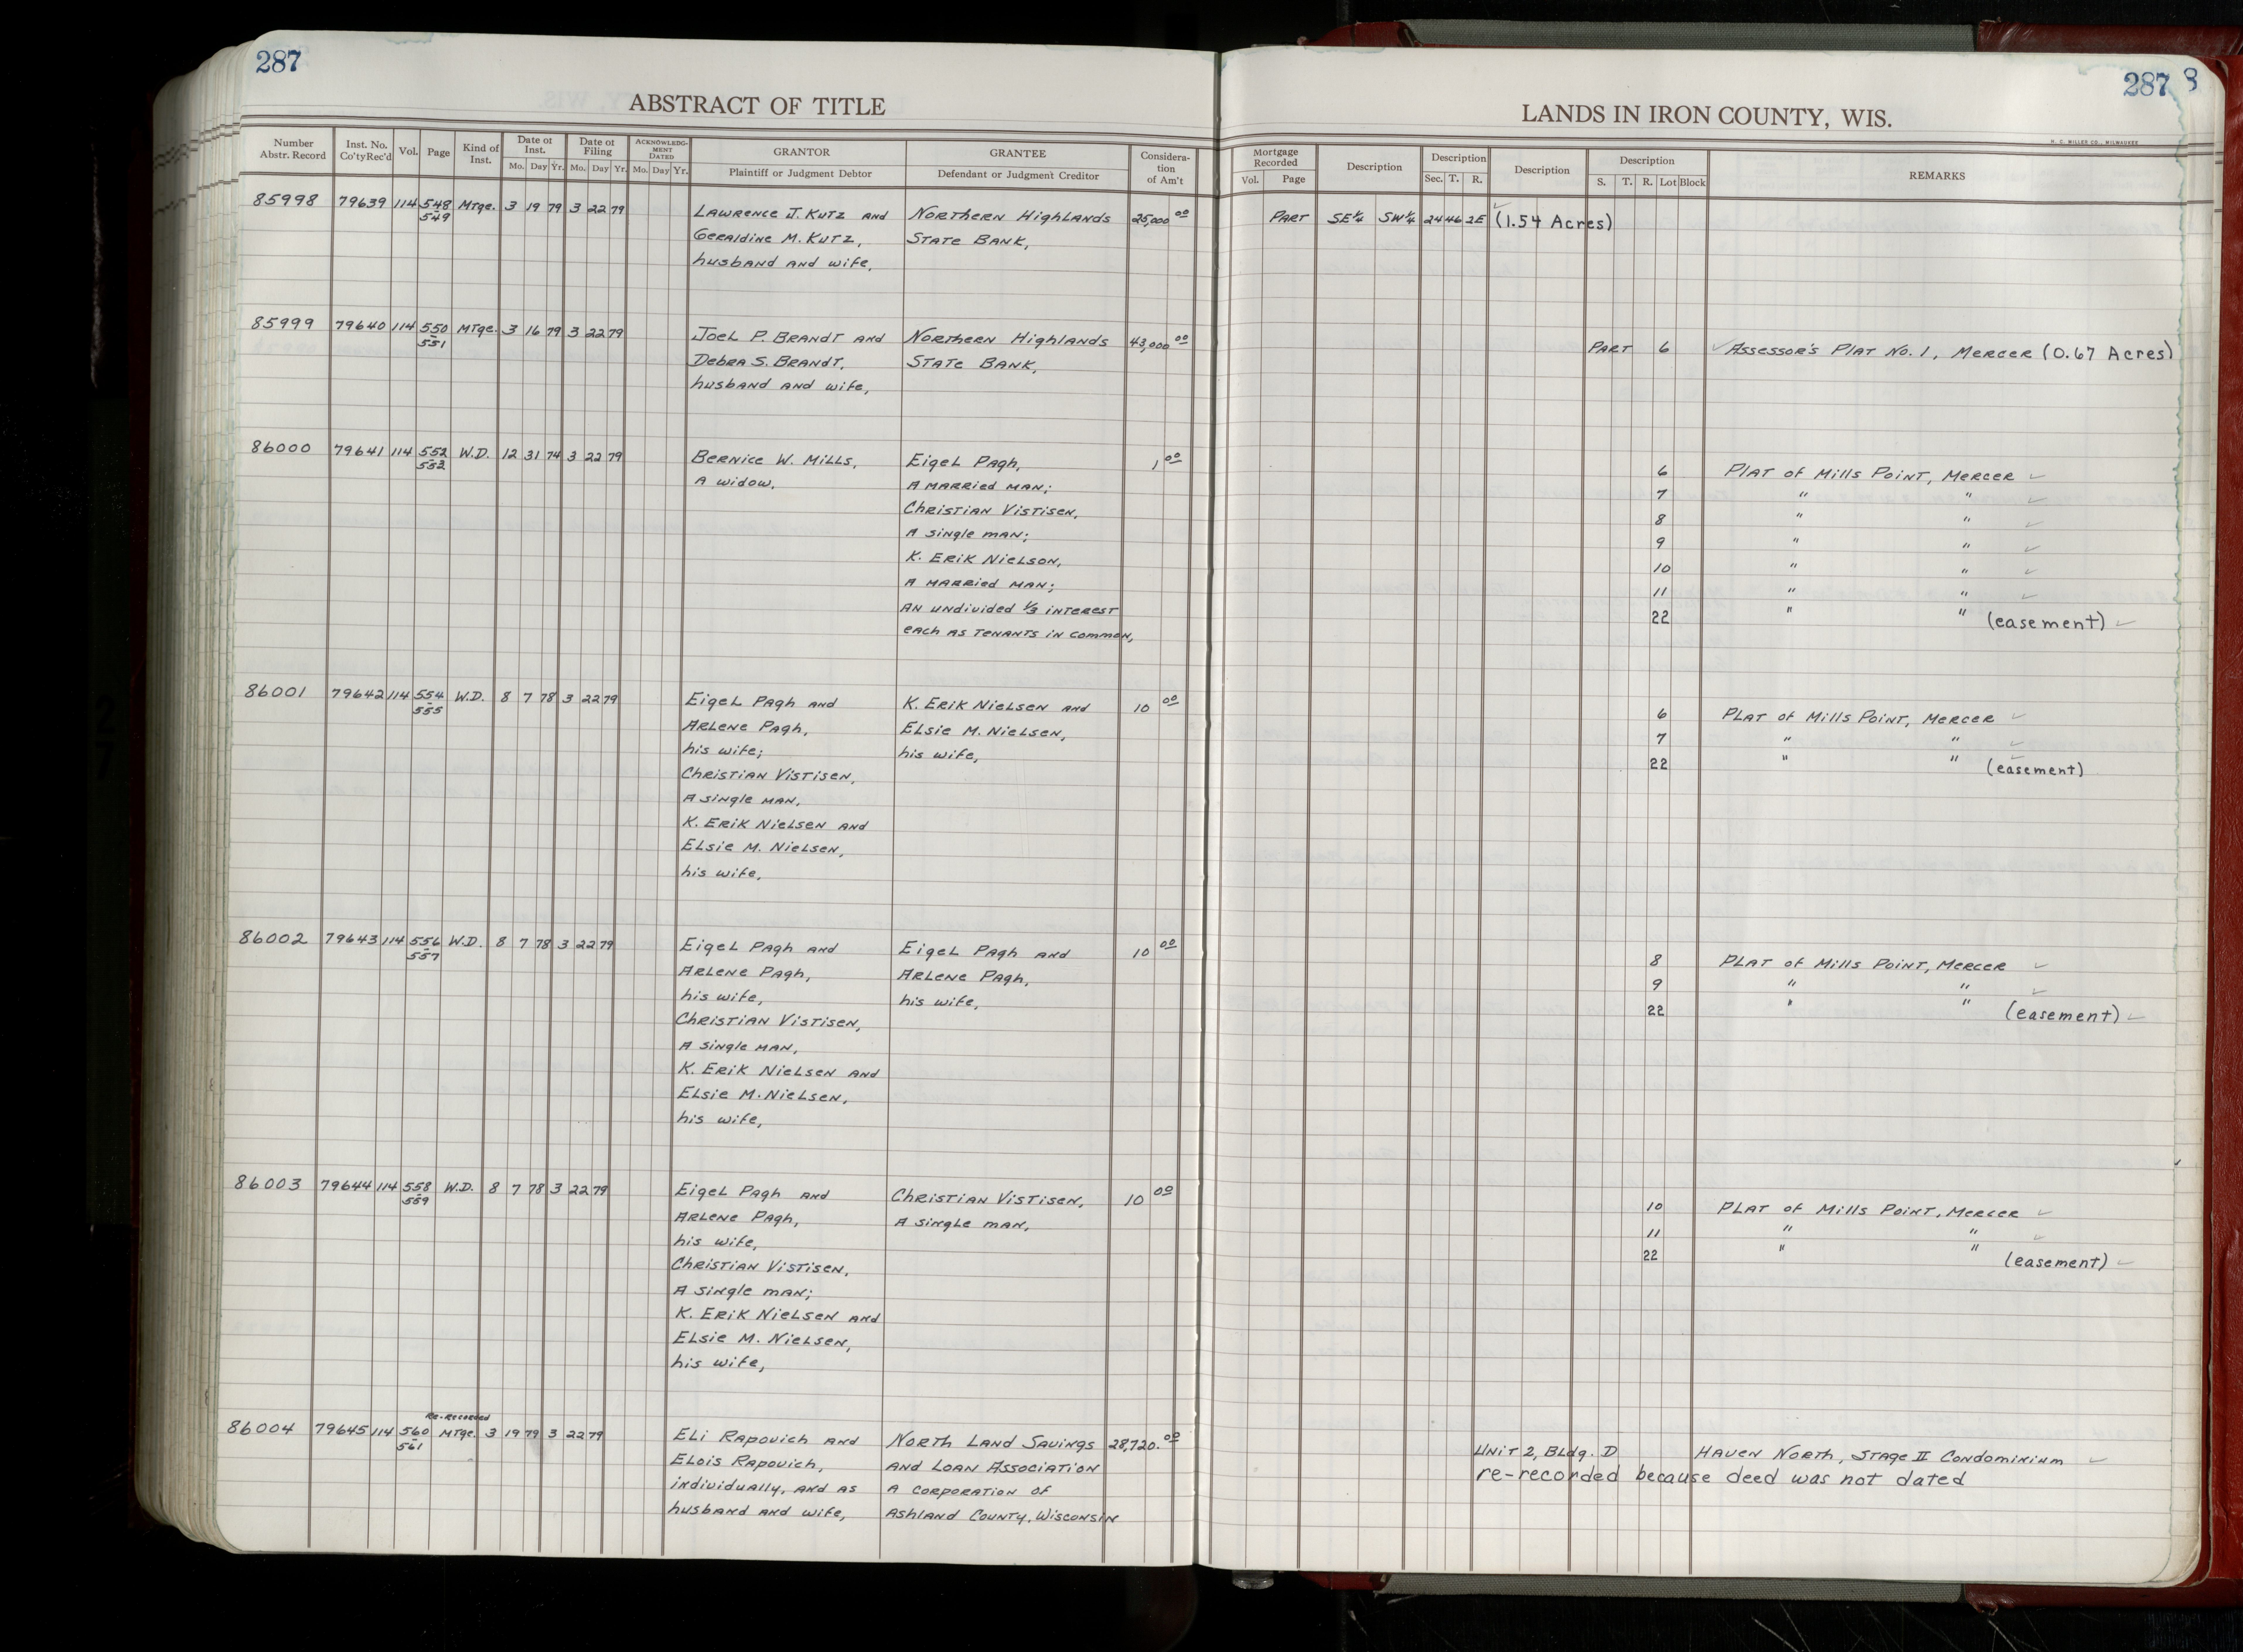 287
ABSTRACT OF TITLE
Number Abstr. Record | Inst. No. Co'ty Rec'd | Vol. | Page | Kind of Inst. | Date of Inst. Mo. Day Yr. | Date of Filing Mo. Day Yr. | ACKNOWLEDGMENT DATED Mo. Day Yr. | GRANTOR Plaintiff or Judgment Debtor | GRANTEE Defendant or Judgment Creditor | Consideration of Am't
85998 79639 114 548-549 Mtge. 3 19 79 3 22 79 Lawrence J. Kutz and Northern Highlands 25,000 00
Geraldine M. Kutz, State Bank,
husband and wife,
85999 79640 114 550-551 Mtge. 3 16 79 3 22 79 Joel P. Brandt and Northern Highlands 43,000 00
Debra S. Brandt, State Bank,
husband and wife,
86000 79641 114 552-553 W.D. 12 31 74 3 22 79 Bernice W. Mills, Eigel Pagh, 1 00
a widow, a married man;
Christian Vistisen,
a single man;
K. Erik Nielson,
a married man;
an undivided 1/3 interest
each as tenants in common,
86001 79642 114 554-555 W.D. 8 7 78 3 22 79 Eigel Pagh and K. Erik Nielsen and 10 00
Arlene Pagh, Elsie M. Nielsen,
his wife; his wife,
Christian Vistisen,
a single man,
K. Erik Nielsen and
Elsie M. Nielsen,
his wife,
86002 79643 114 556-557 W.D. 8 7 78 3 22 79 Eigel Pagh and Eigel Pagh and 10 00
Arlene Pagh, Arlene Pagh,
his wife, his wife,
Christian Vistisen,
a single man,
K. Erik Nielsen and
Elsie M. Nielsen,
his wife,
86003 79644 114 558-559 W.D. 8 7 78 3 22 79 Eigel Pagh and Christian Vistisen, 10 00
Arlene Pagh, a single man,
his wife,
Christian Vistisen,
a single man;
K. Erik Nielsen and
Elsie M. Nielsen,
his wife,
Re-recorded
86004 79645 114 560-561 Mtge. 3 19 79 3 22 79 Eli Rapovich and North Land Savings 28,720.00
Elois Rapovich, and Loan Association
individually, and as a corporation of
husband and wife, Ashland County, Wisconsin
287 8
LANDS IN IRON COUNTY, WIS.
H. C. MILLER CO., MILWAUKEE
Mortgage Recorded Vol. Page | Description | Description Sec. T. R. | Description | Description S. T. R. Lot Block | REMARKS
Part SE¼ SW¼ 24 46 2E (1.54 Acres)
Part 6 Assessor's Plat No. 1, Mercer (0.67 Acres)
6 Plat of Mills Point, Mercer
7 " "
8 " "
9 " "
10 " "
11 " "
22 " " (easement)
6 Plat of Mills Point, Mercer
7 " "
22 " " (easement)
8 Plat of Mills Point, Mercer
9 " "
22 " " (easement)
10 Plat of Mills Point, Mercer
11 " "
22 " " (easement)
Unit 2, Bldg. D Haven North, Stage II Condominium
re-recorded because deed was not dated